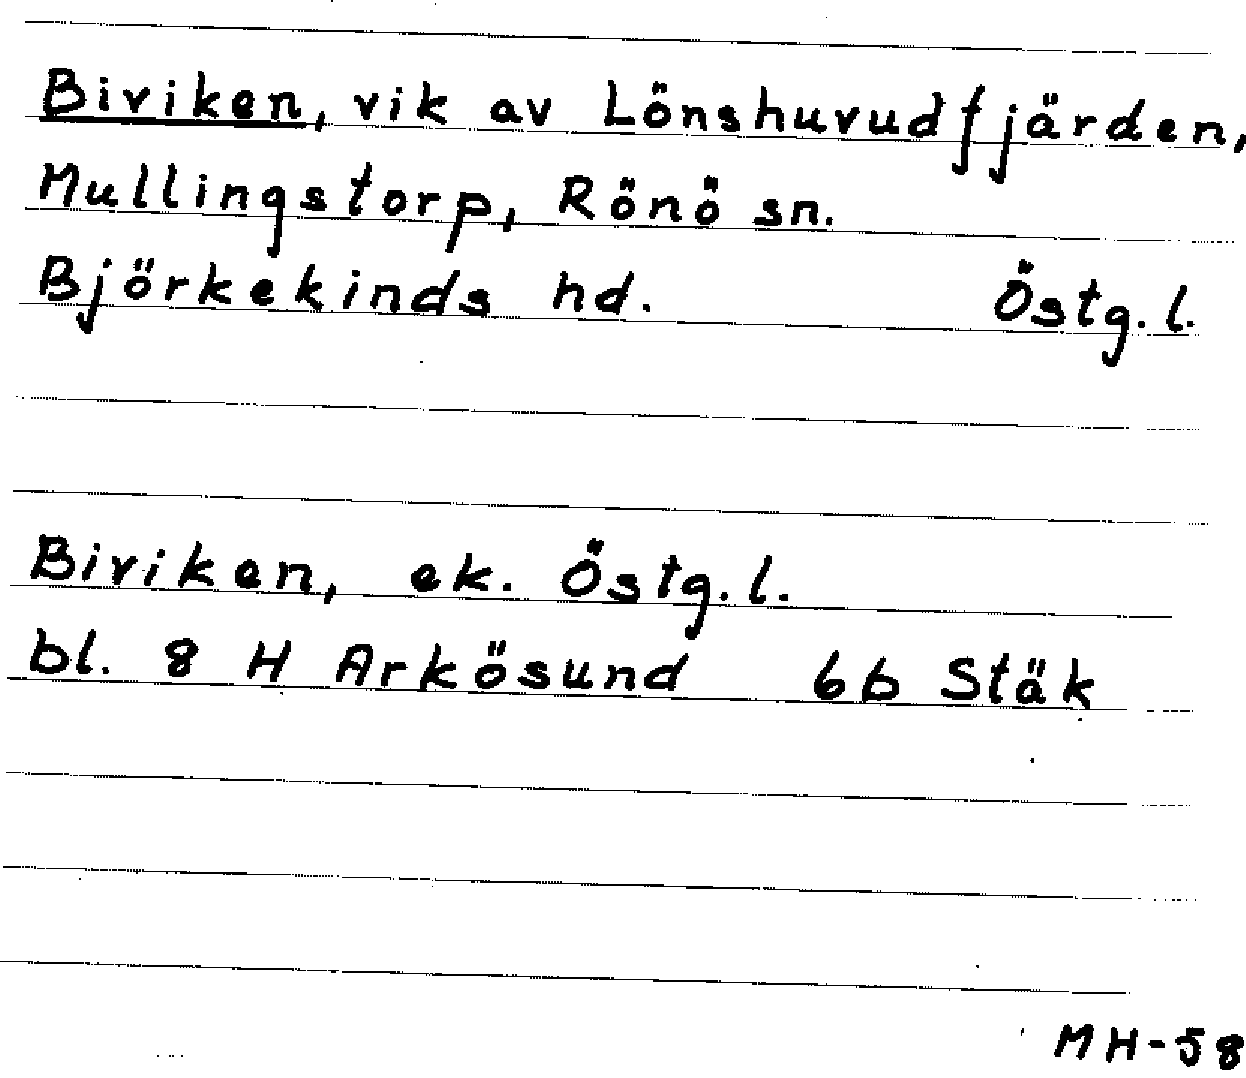 Biviken, vik av Lönshuvudfjärden,
Mullingstorp, Rönö sn.
Björkekinds hd. Östg.l.
Biviken, ek. Östg.l.
bl. 8 H Arkösund 6b Stäk
MH-58